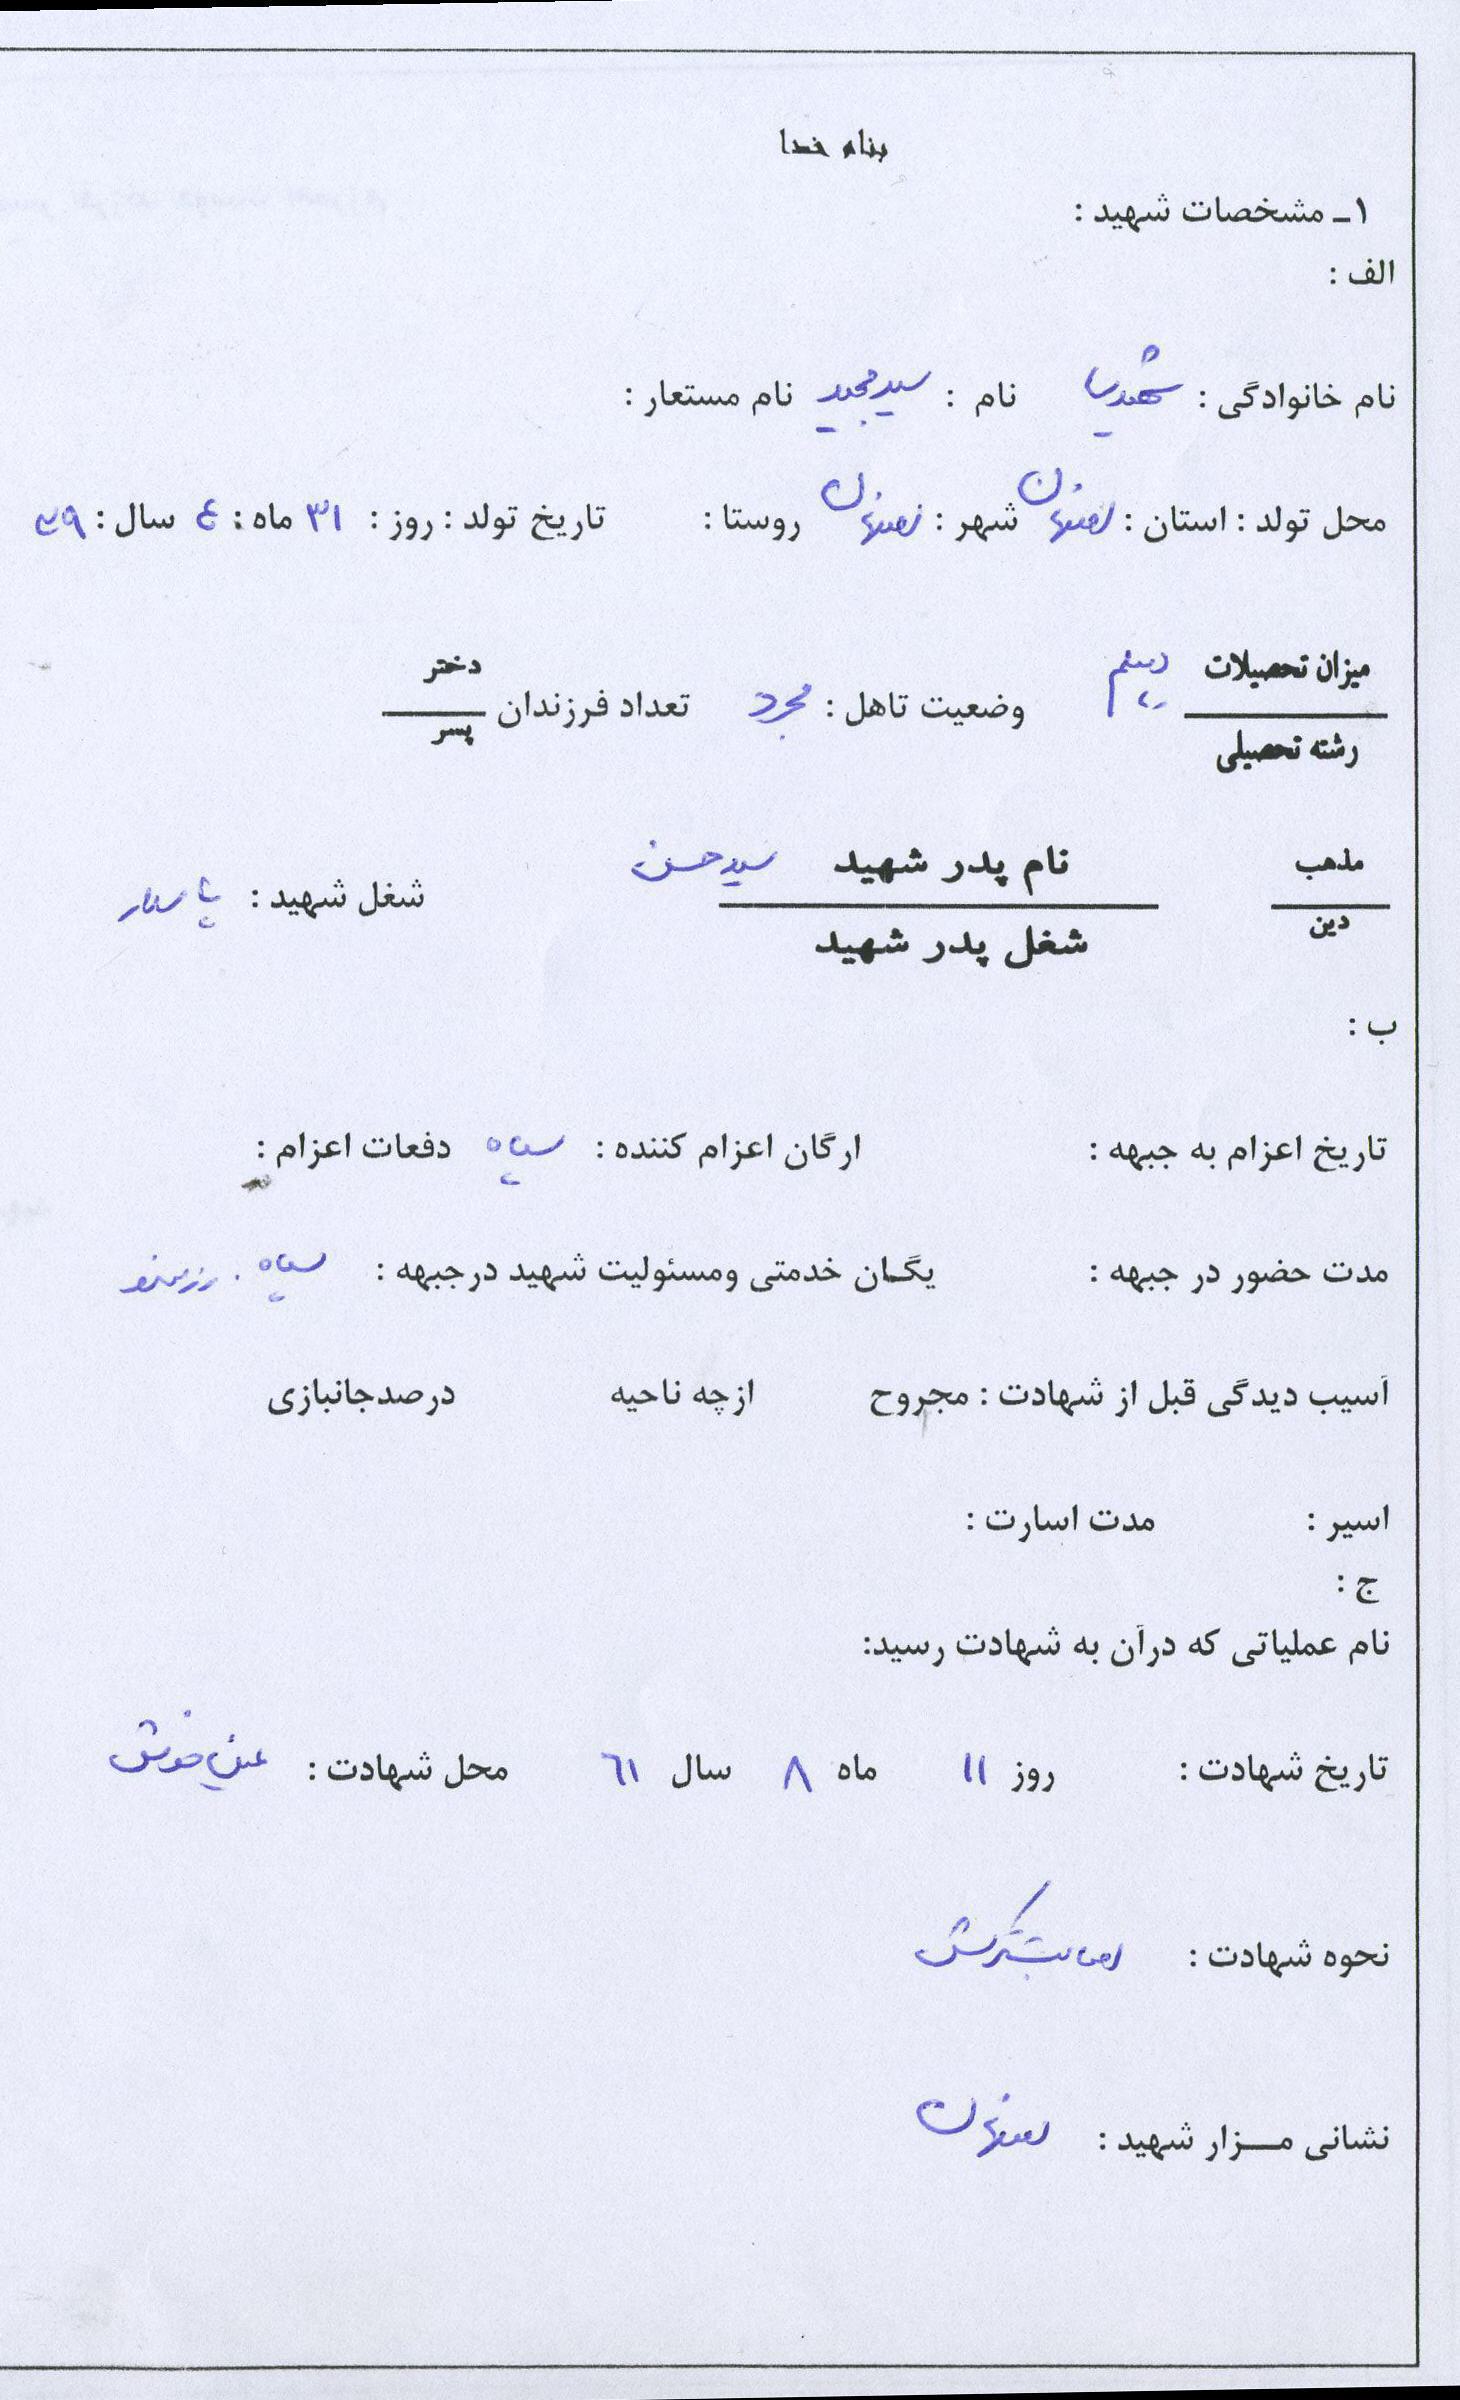 بنام خدا
۱ـ مشخصات شهید :
الف :
نام خانوادگی : نام : سید مجید نام مستعار :
محل تولد : استان : اصفهان شهر : اصفهان روستا : تاریخ تولد : روز : ۳۱ ماه : ٤ سال : ۳۹
میزان تحصیلات دیپلم وضعیت تاهل : مجرد تعداد فرزندان دختر
رشته تحصیلی پسر
مذهب نام پدر شهید سید حسن شغل شهید : پاسدار
دین شغل پدر شهید
ب :
تاریخ اعزام به جبهه : ارگان اعزام کننده : سپاه دفعات اعزام :
مدت حضور در جبهه : یگان خدمتی ومسئولیت شهید درجبهه : سپاه . رزمنده
آسیب دیدگی قبل از شهادت : مجروح ازچه ناحیه درصدجانبازی
اسیر : مدت اسارت :
ج :
نام عملیاتی که درآن به شهادت رسید:
تاریخ شهادت : روز ۱۱ ماه ۸ سال ٦۱ محل شهادت : عین خوش
نحوه شهادت : اصابت ترکش
نشانی مـزار شهید : اصفهان